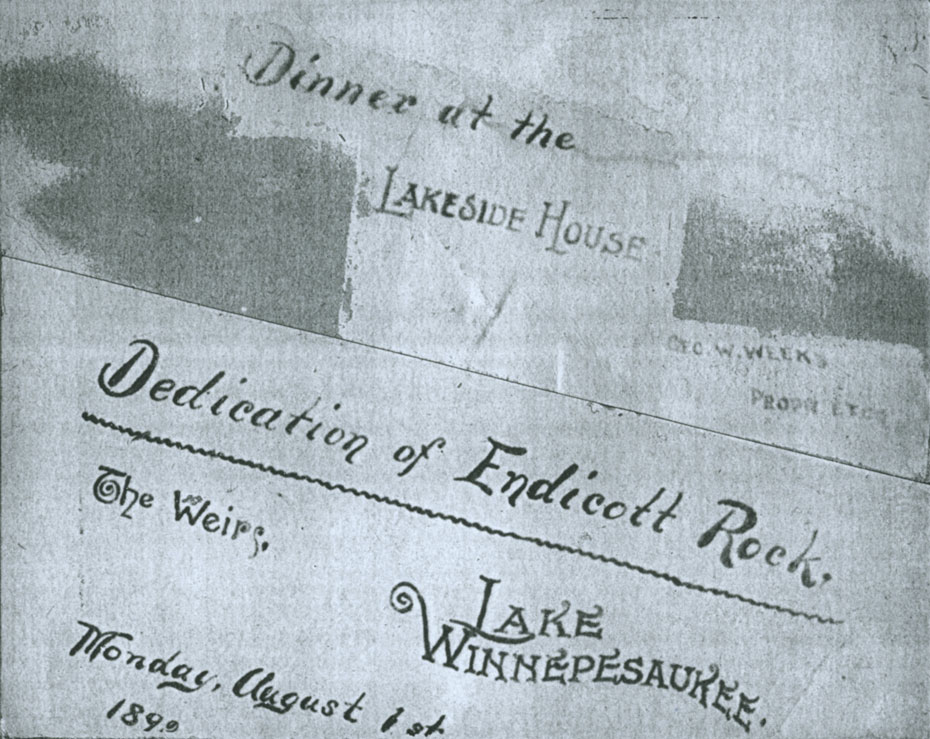 Dinner at the
LAKESIDE HOUSE.
GEO. W. WEEKS
PROPRIETOR
Dedication of Endicott Rock.
The Weirs,
LAKE
WINNEPESAUKEE.
Monday, August 1st